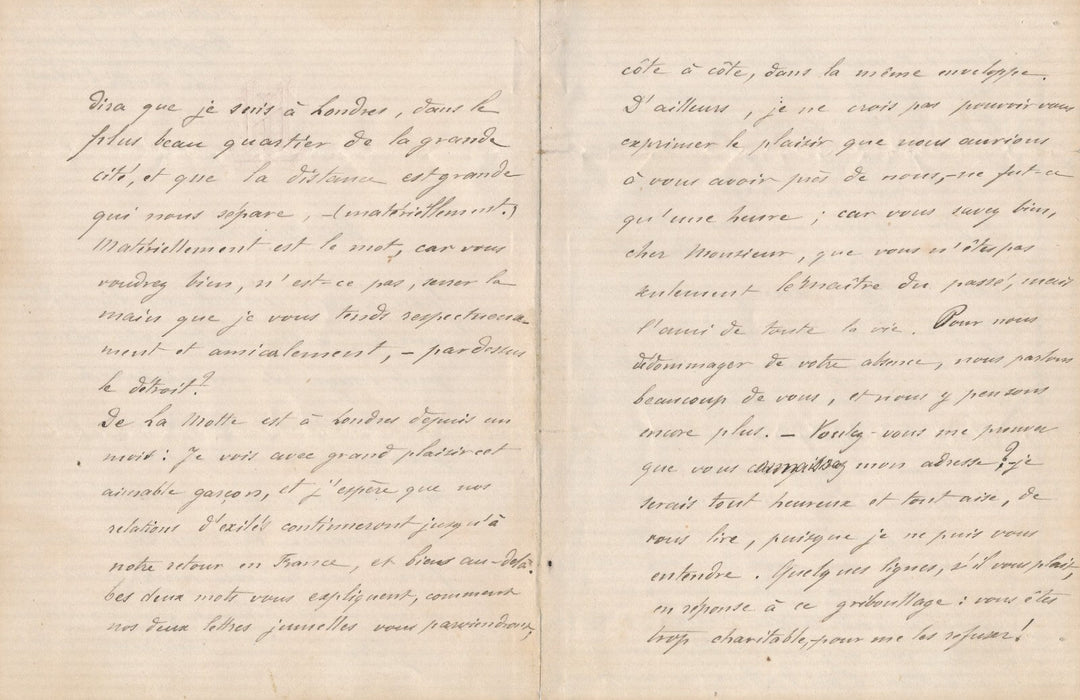 dira que je suis à Londres, dans le
plus beau quartier de la grande
cité, et que la distance est grande
qui nous sépare, - (matériellement.)
Matériellement est le mot, car vous
voudrez bien, n'est-ce pas, serrer la
main que je vous tends respectueuse-
ment et amicalement, - par dessus
le détroit?
De La Motte est à Londres depuis un
mois: Je vois avec grand plaisir cet
aimable garçon, et j'espère que nos
relations d'exilés continueront jusqu'à
notre retour en France, et bien au-delà.
Ces deux mots vous expliquent, comment
nos deux lettres jumelles vous parviendront,
côte à côte, dans la même enveloppe.
D'ailleurs, je ne crois pas pouvoir vous
exprimer le plaisir que nous aurions
à vous avoir près de nous, - ne fut-ce
qu'une heure; car vous savez bien,
cher Monsieur, que vous n'êtes pas
seulement le maître du passé, mais
l'ami de toute la vie. Pour nous
dédommager de votre absence, nous parlons
beaucoup de vous, et nous y pensons
encore plus. - Voulez-vous me prouver
que vous connaissez mon adresse? - je
serais tout heureux et tout aise, de
vous lire, puisque je ne puis vous
entendre. Quelques lignes, s'il vous plait,
en réponse à ce gribouillage: vous êtes
trop charitable, - pour me les refuser!